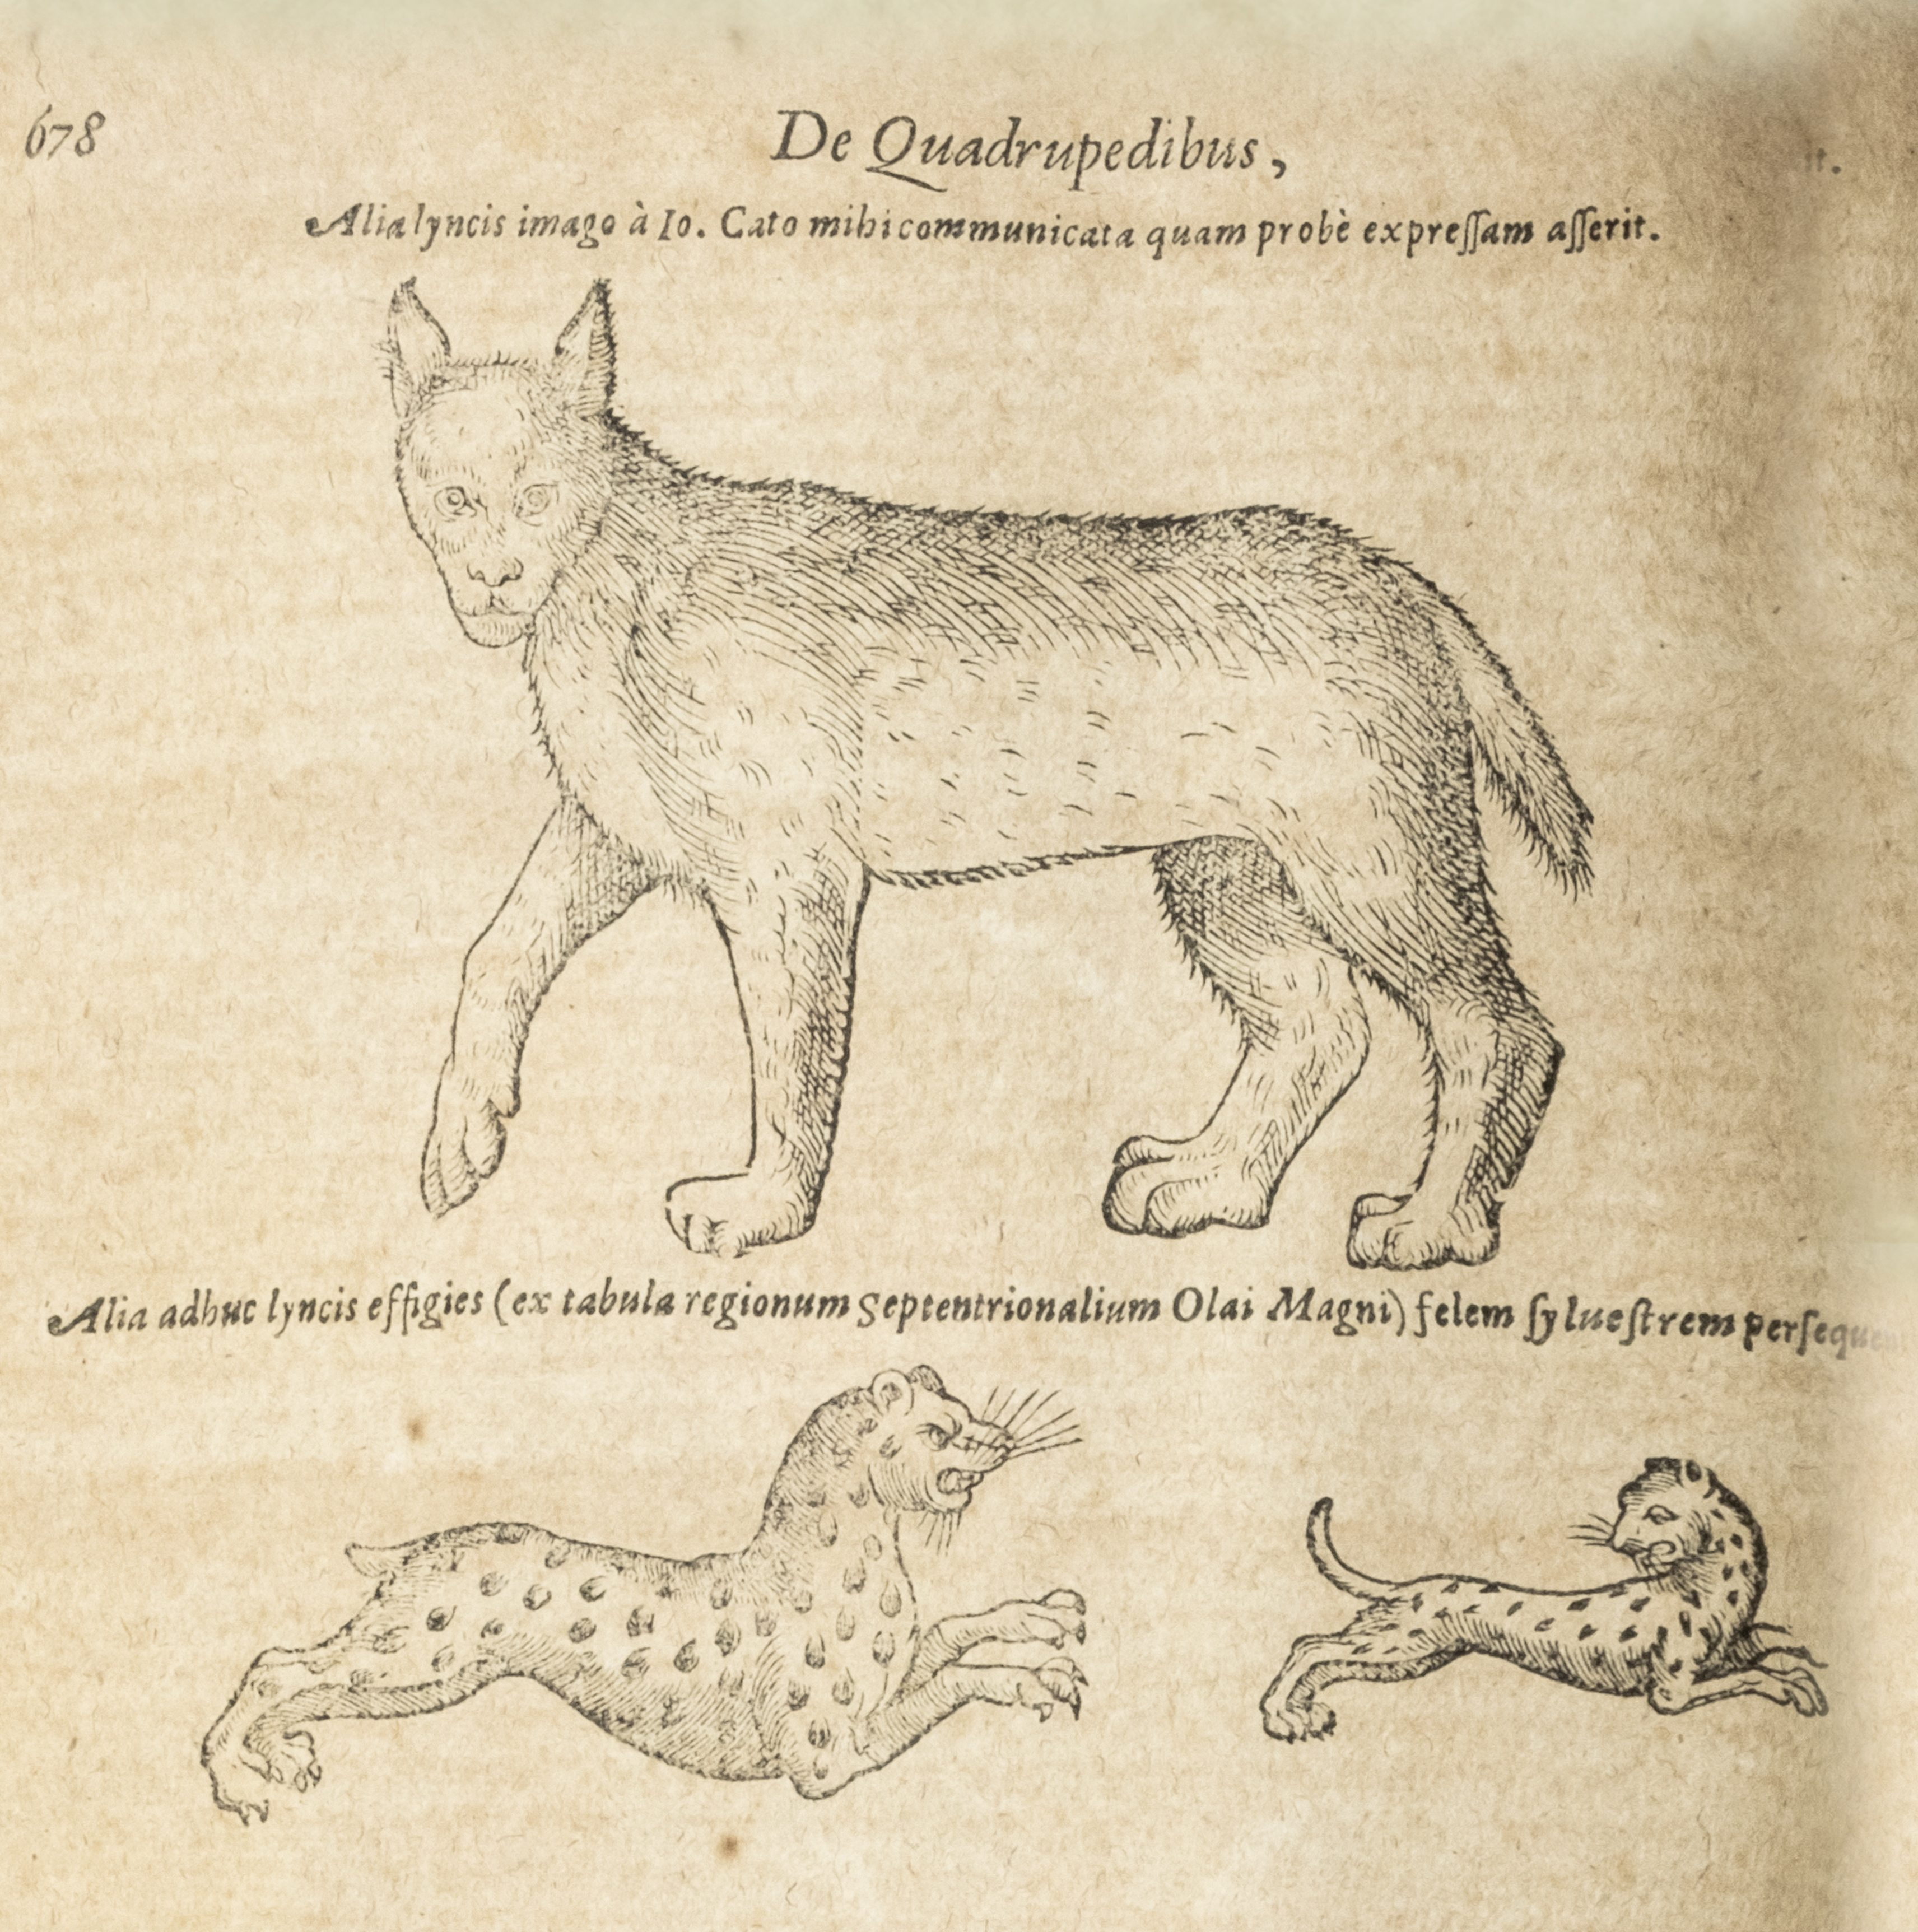 678
De Quadrupedibus,
Alia lyncis imago à Io. Cato mihi communicata quam probè expreſſam aſſerit.
Alia adhuc lyncis effigies (ex tabula regionum Septentrionalium Olai Magni) felem ſylueſtrem